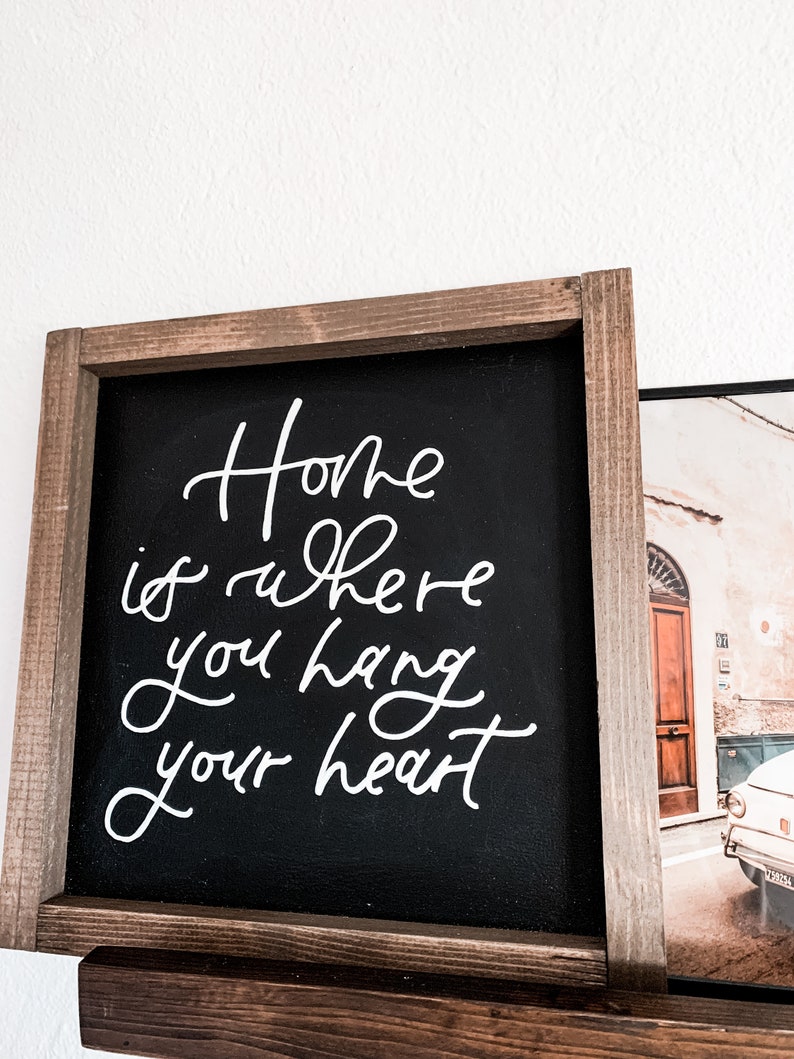 Home
is where
you hang
your heart
97
759254